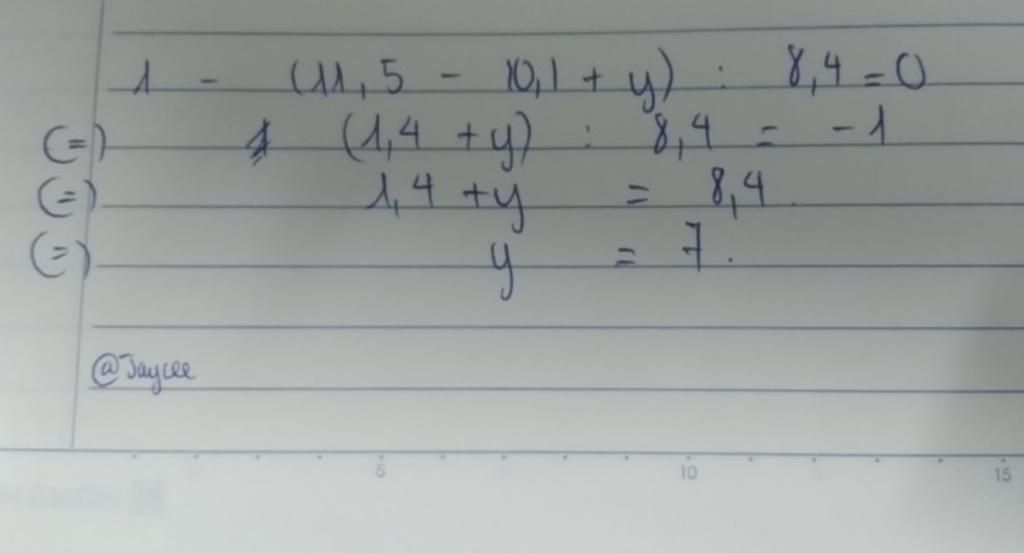 1 - (11,5 - 10,1 + y) : 8,4 = 0
(=) (1,4 + y) : 8,4 = -1
(=) 1,4 + y = 8,4
(=) y = 7.
@Jaycee
5 10 15